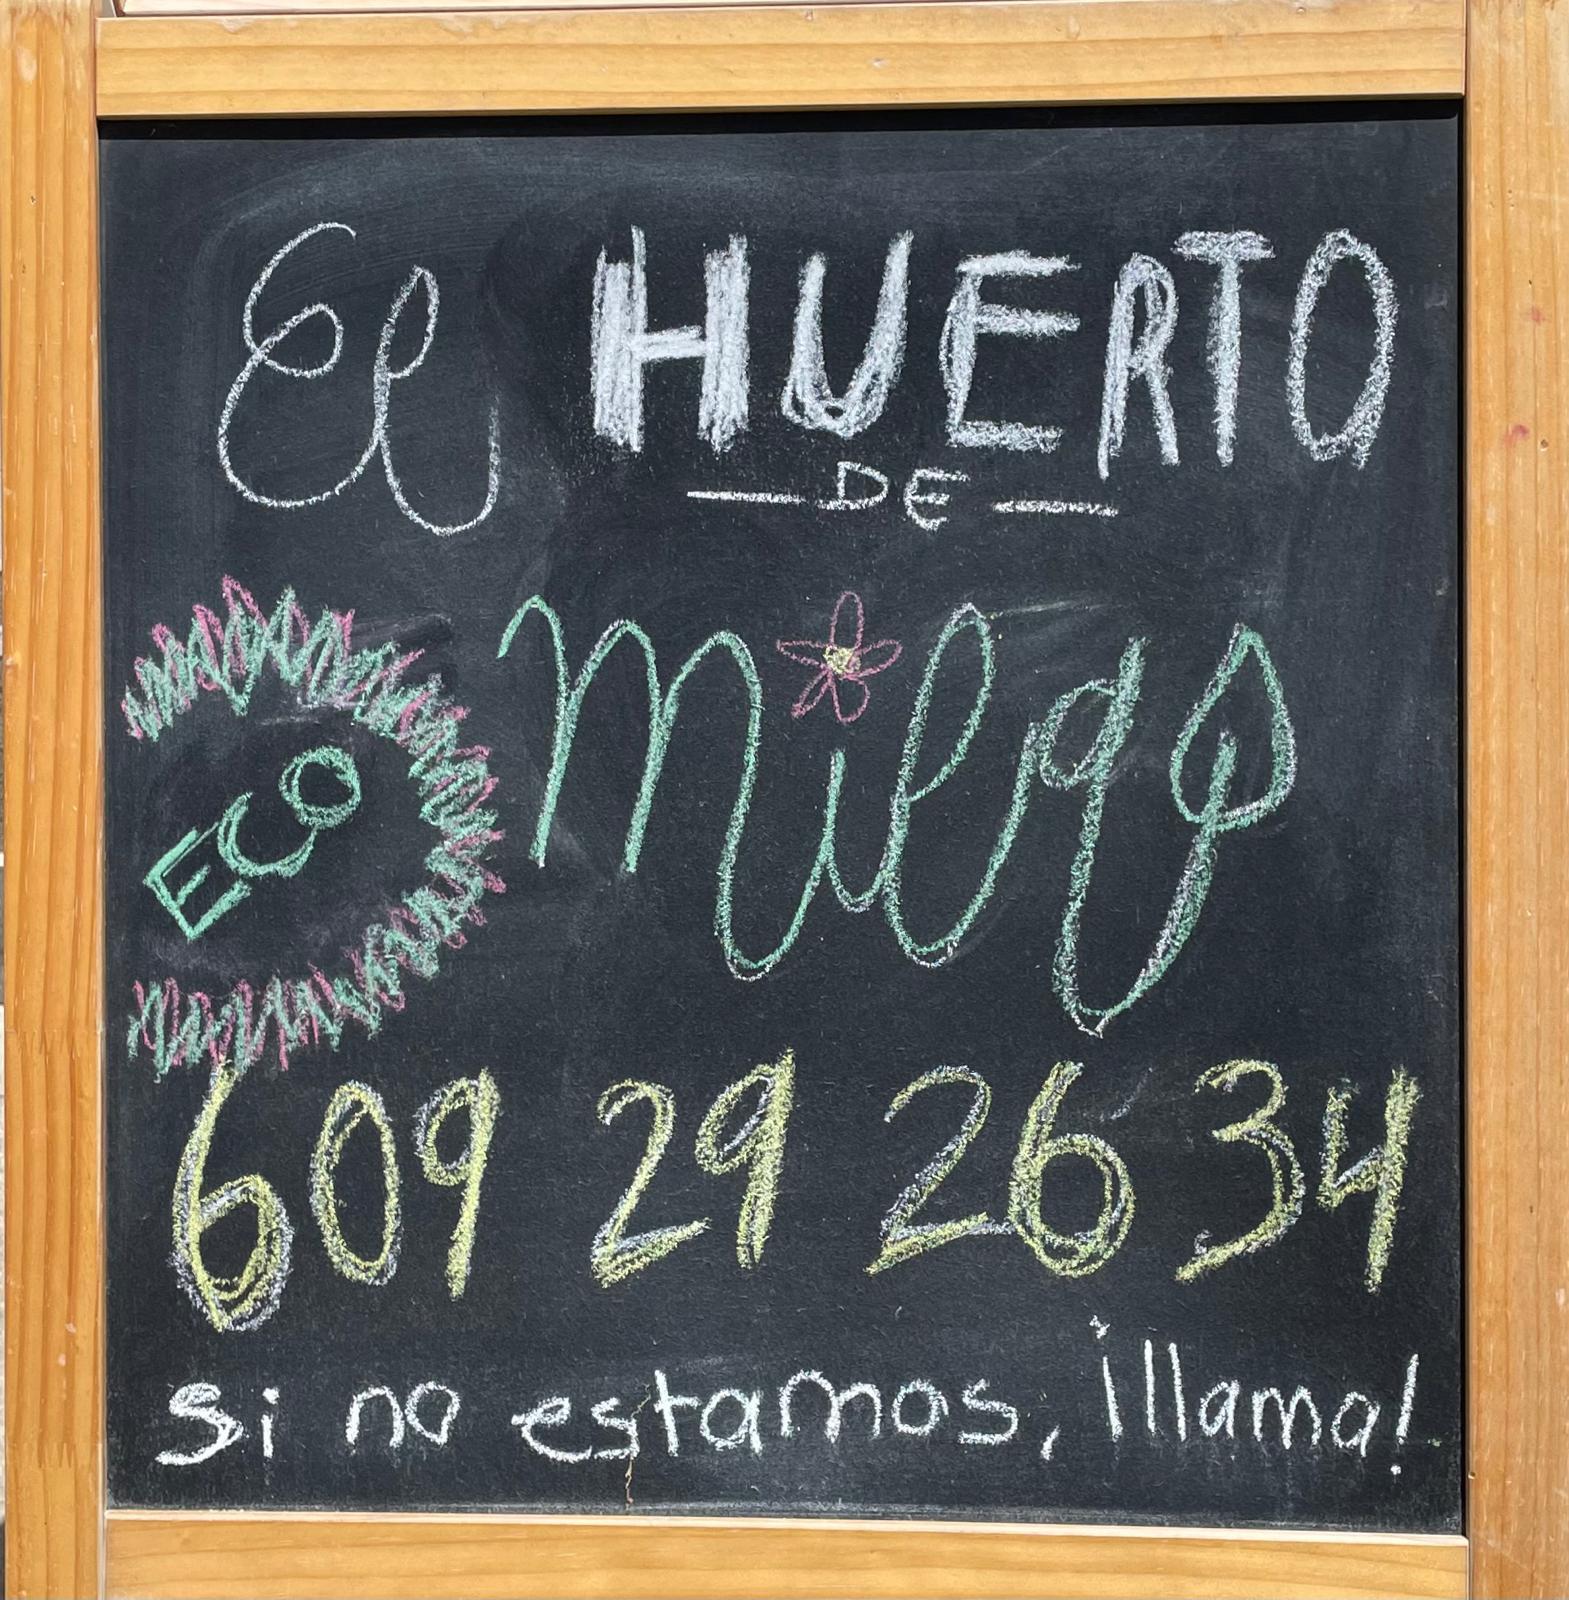 El HUERTO
DE
Milgo
ECO
609 29 26 34
Si no estamos, ¡llama!